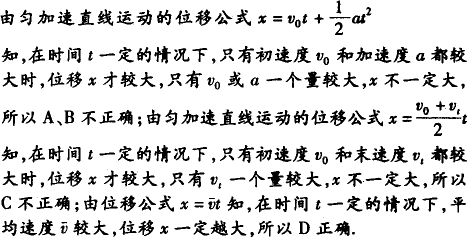 由匀加速直线运动的位移公式 x = v₀t + 1/2 at²
知,在时间 t 一定的情况下,只有初速度 v₀ 和加速度 a 都较
大时,位移 x 才较大,只有 v₀ 或 a 一个量较大,x 不一定大,
所以 A、B 不正确;由匀加速直线运动的位移公式 x = (v₀ + vₜ)/2 t
知,在时间 t 一定的情况下,只有初速度 v₀ 和末速度 vₜ 都较
大时,位移 x 才较大,只有 vₜ 一个量较大,x 不一定大,所以
C 不正确;由位移公式 x = v̄t 知,在时间 t 一定的情况下,平
均速度 v̄ 较大,位移 x 一定越大,所以 D 正确.